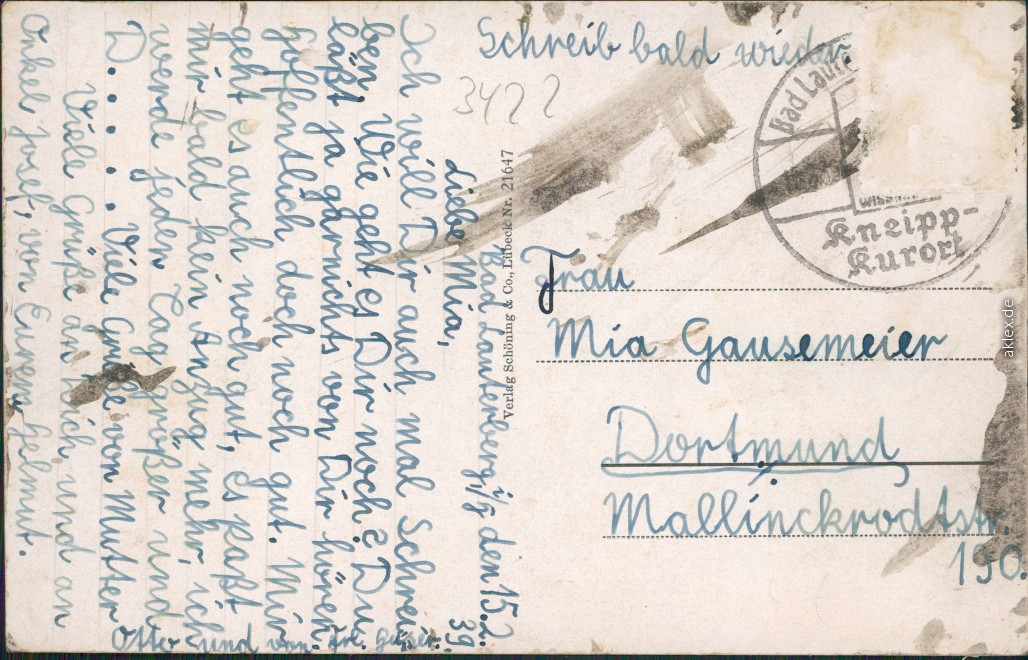 Schreib bald wieder.
3422
Bad Lauterberg i/H den 15.2.
39.
Liebe Mia,
Ich will Dir auch mal Schrei
ben. Wie geht es Dir noch? Du
läßt ja garnichts von Dir hören.
Hoffentlich doch noch gut. Mir
geht es auch noch gut, es paßt
mir bald kein Anzug mehr, ich
werde jeden Tag größer und
D. . . . . Viele Grüße von Mutter
Otto und von Frl.
Viele Grüße an Dich und an
Onkel Josef, von Eurem Helmut.
Verlag Schöning & Co., Lübeck Nr. 21647
Bad Laut
Kneipp-
Kurort
Frau
Mia Gausemeier
Dortmund
Mallinckrodtstr.
190.
aklex.de